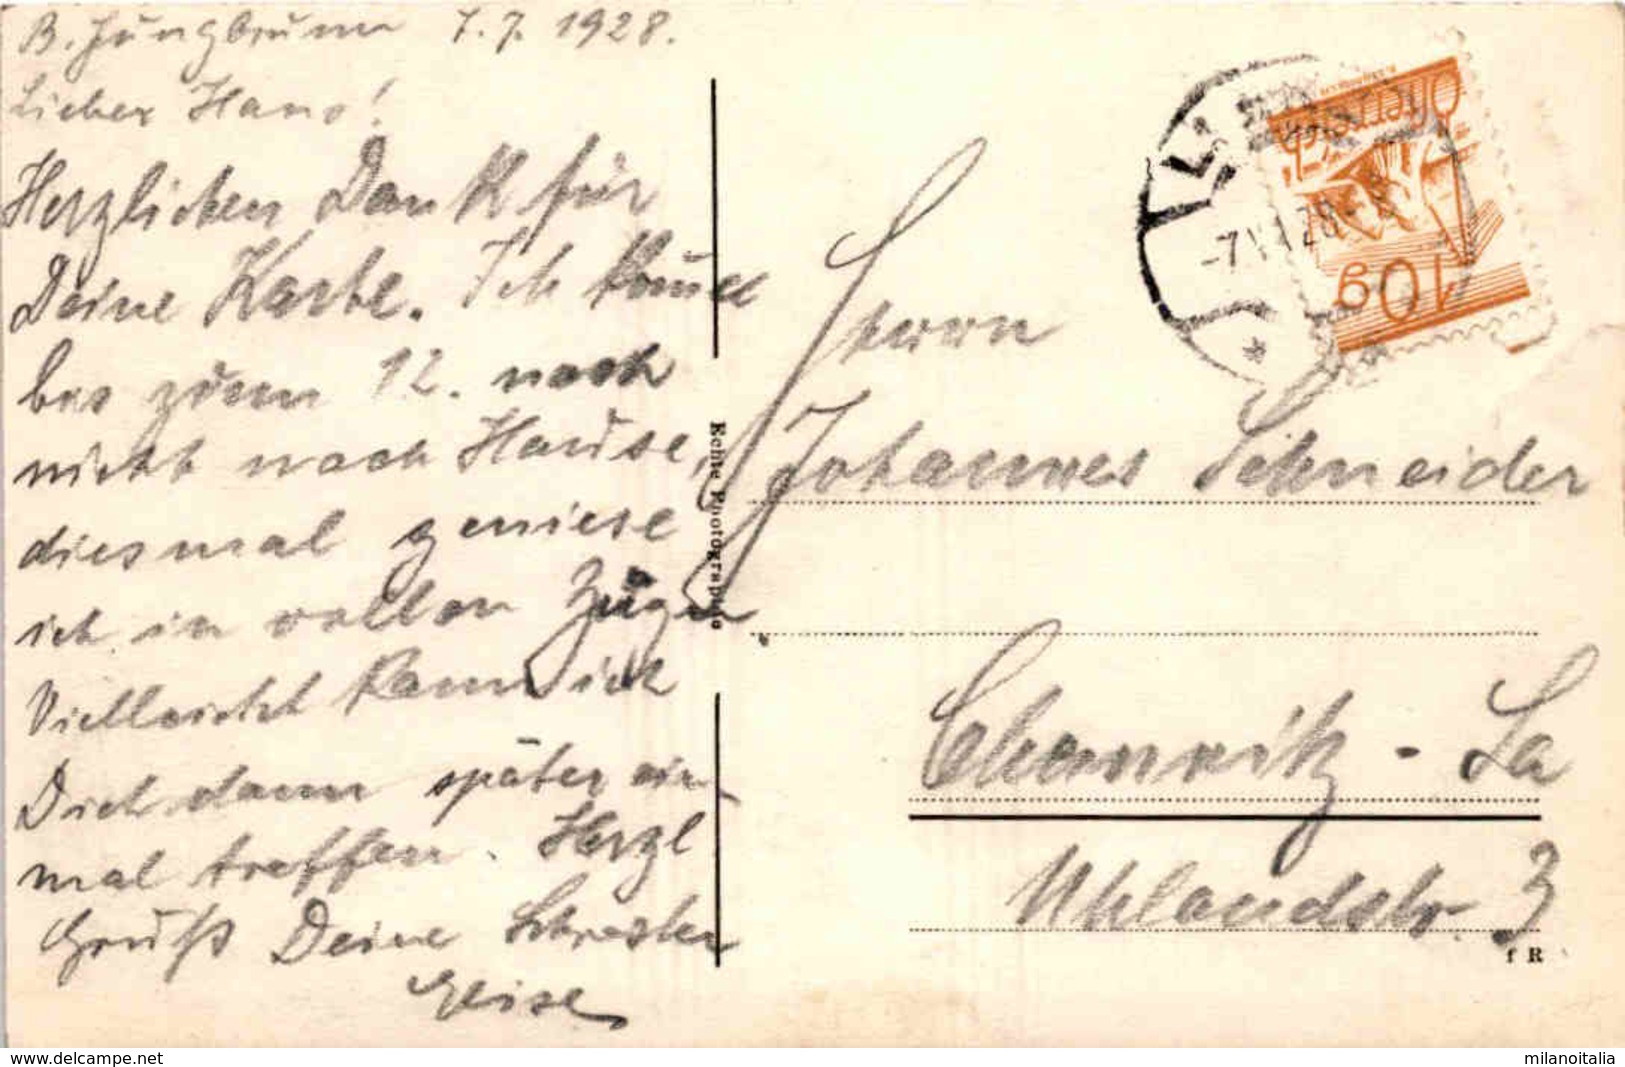 B. Jungbrunn 7.7. 1928.
Lieber Hans!
Herzlichen Dank für
Deine Karte. Ich komme
bis zum 12. noch
nicht nach Hause,
diesmal geniese
ich in vollen Zügen
Vielleicht kann ich
Dich dann später ein-
mal treffen. Herzl
Gruß Deine Schwester
Elise
Echte Photographie
Herrn
Johannes Schneider
Chemnitz - Sa
Uhlandstr. 3
f R
10 g
-7 VII 28
www.delcampe.net
milanoitalia